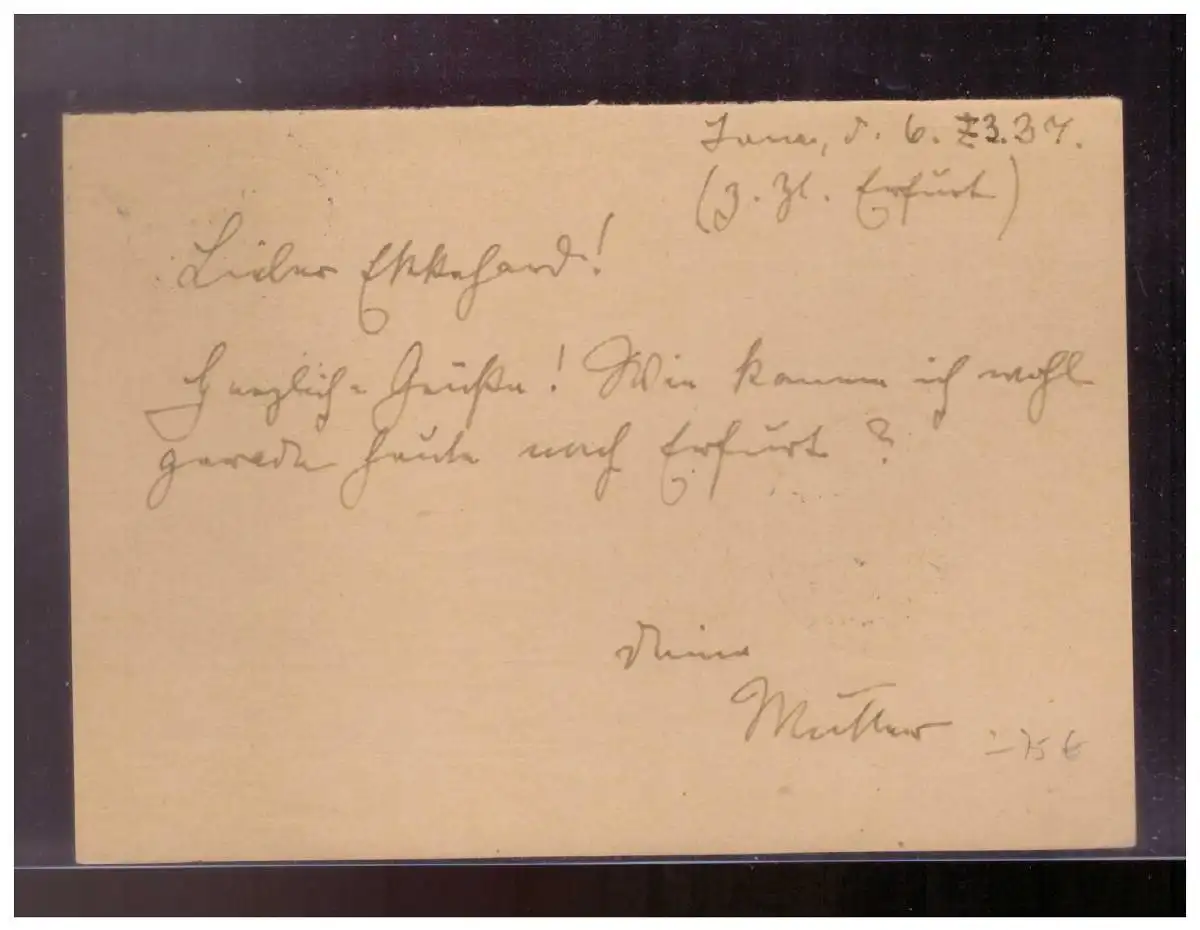 Jena, d. 6. 3. 37.
(z. Zt. Erfurt)
Lieber Ekkehard!
Herzliche Grüße! Wie komme ich wohl
gerade heute nach Erfurt?
Deine
Mutter
-75 €